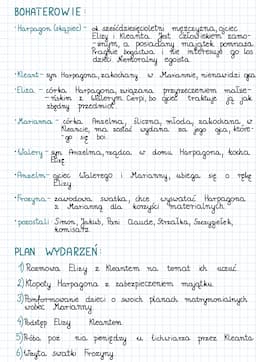 BOHATEROWIE:
• Harpagon (skąpiec) - ok sześćdziesięcioletni mężczyzna, ojciec
Elizy i Kleanta. Jest człowiekiem zamo-
żnym, a posiadany majątek pomnaża.
Pragnie bogactwa i nie interesuje go los
dzieci. Nienormalny egoista.
• Kleant - syn Harpagona, zakochany w Mariannie, nienawidzi ojca
• Eliza - córka Harpagona, związana przyrzeczeniem małże-
ńskim z Walerym. Cierpi, bo ojciec traktuje ją jak
zbędny przedmiot.
• Marianna - córka Anzelma, śliczna, młoda, zakochana w
Kleancie, ma zostać wydana za jego ojca, które-
go się boi.
• Walery - syn Anzelma, rządca w domu Harpagona, kocha
Elizę
• Anzelm - ojciec Walerego i Marianny, ubiega się o rękę
Elizy
• Frozyna - zawodowa swatka, chce wyswatać Harpagona
z Marianną dla korzyści materialnych.
• pozostali: Simon, Jakub, Pani Claude, Strzałka, Szczygiełek,
komisarz
PLAN WYDARZEŃ:
1) Rozmowa Elizy z Kleantem na temat ich uczuć.
2) Kłopoty Harpagona z zabezpieczeniem majątku.
3) Poinformowanie dzieci o swoich planach matrymonialnych
wobec Marianny
4) Podstęp Elizy Kleantem.
5) Próba poż nia pieniędzy u lichwiarza przez Kleanta
6) Wizyta swatki Frozyny